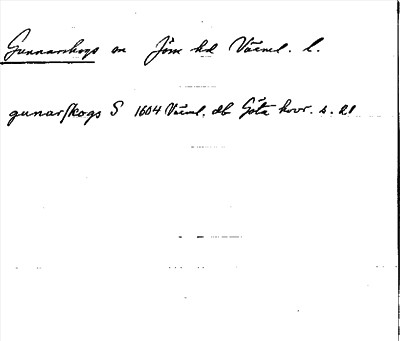 Gunnarskogs sn Jösse hd Värml. l.
gunarſkogs S 1604 Värml. db Göta hovr. s. 21